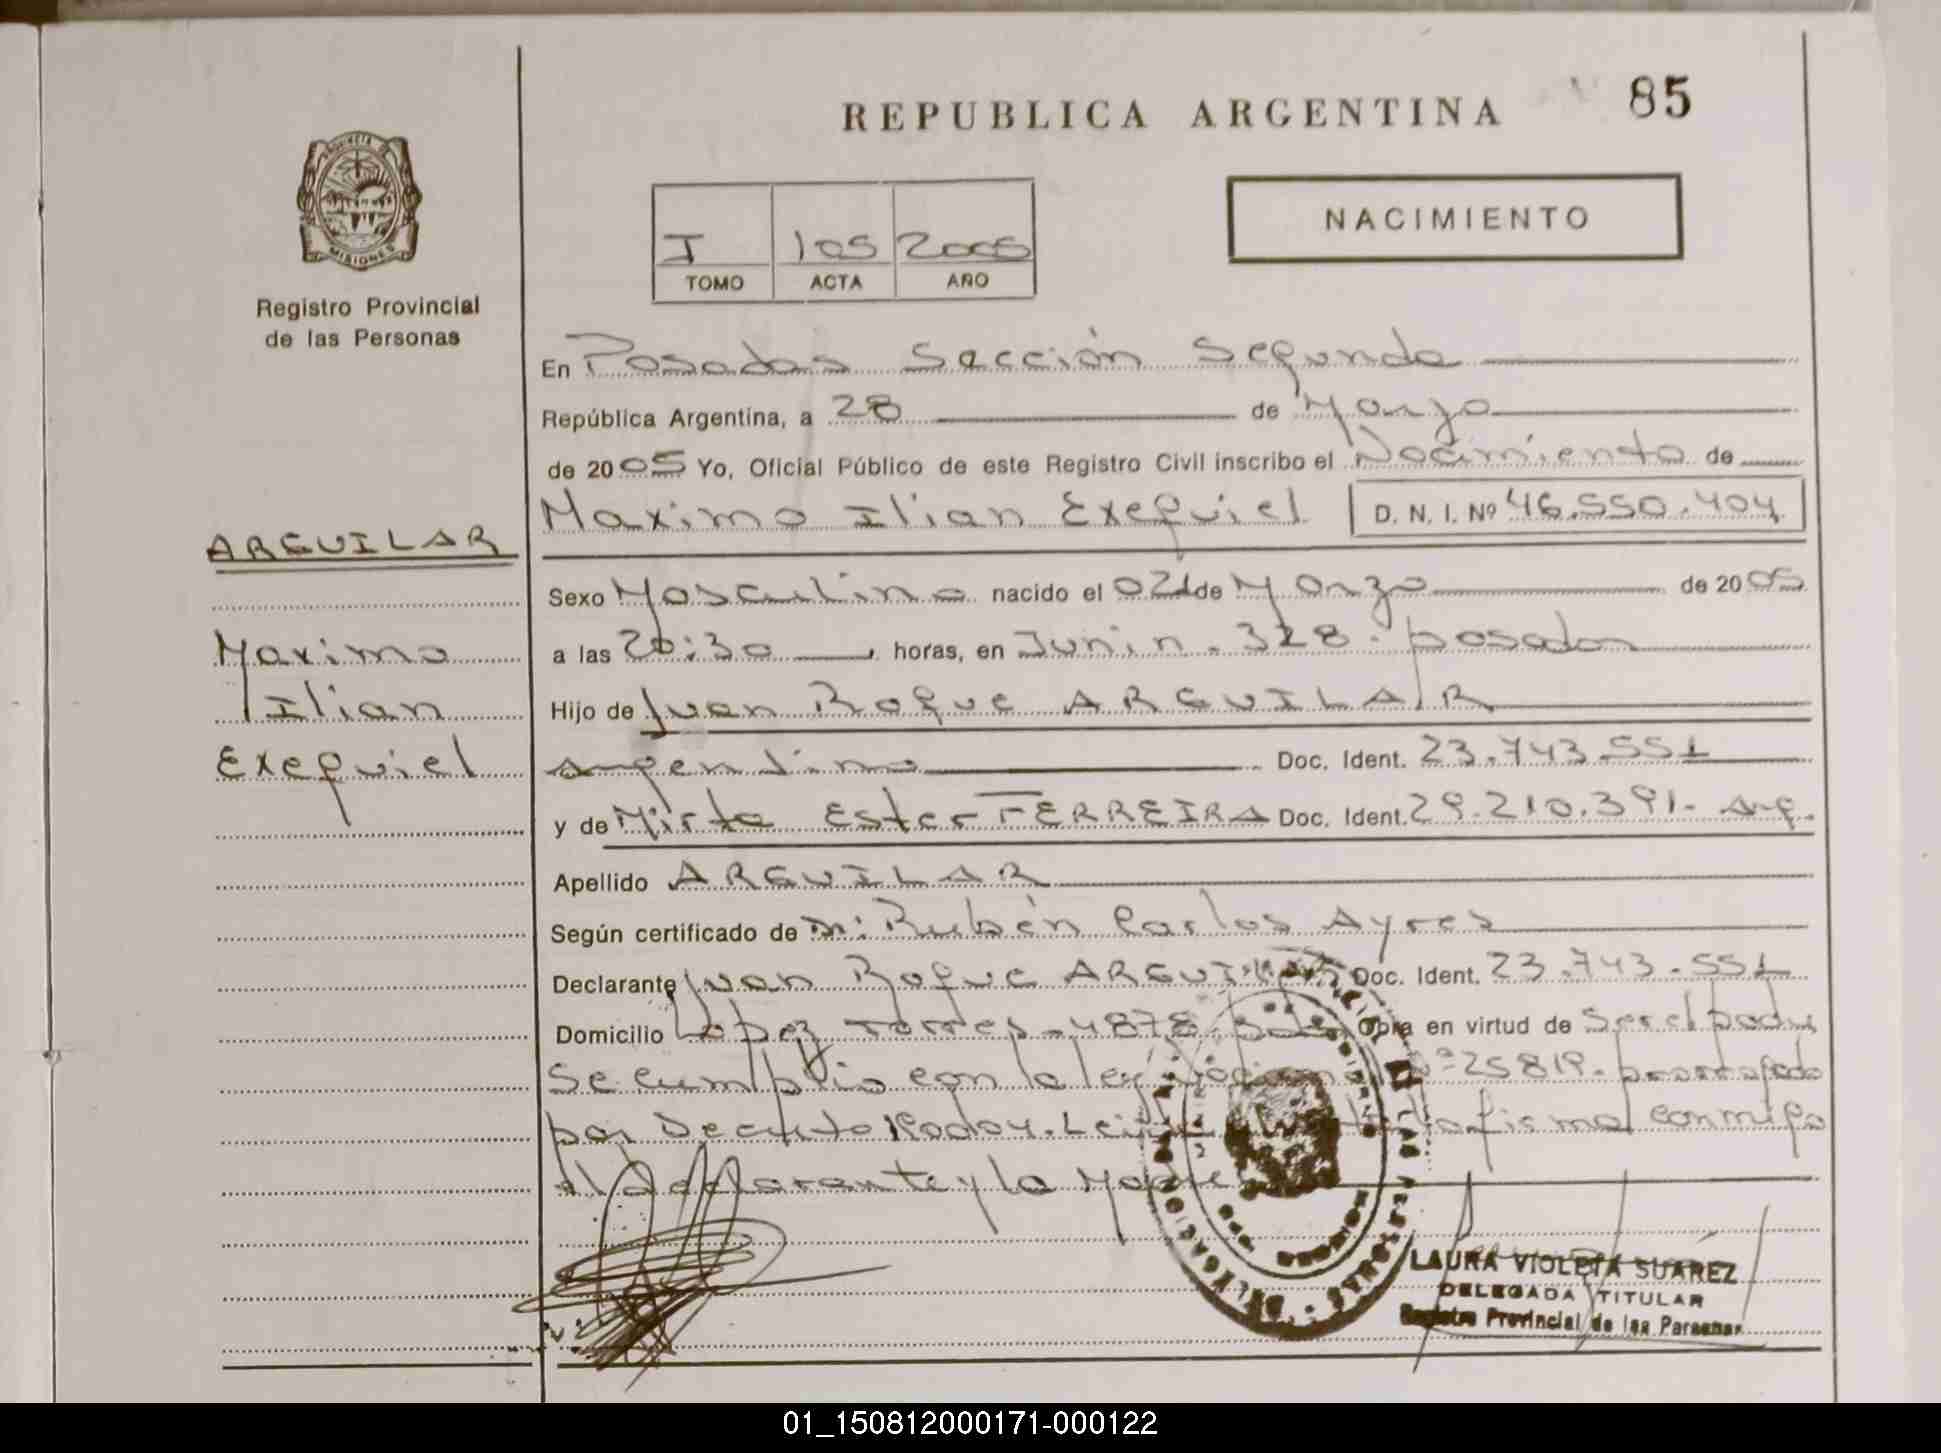 REPUBLICA ARGENTINA
85
PROVINCIA DE
MISIONES
Registro Provincial
de las Personas
I 105 2005
TOMO ACTA AÑO
NACIMIENTO
En Posadas Sección Segunda
República Argentina, a 28 de Marzo
de 2005 Yo, Oficial Público de este Registro Civil inscribo el Nacimiento de
Maximo Ilian Exequiel D. N. I. Nº 46.550.404
ARGUILAR
Maximo
Ilian
Exequiel
Sexo Masculino nacido el 02 de Marzo de 2005
a las 20:30 horas, en Junin. 328. posadas
Hijo de Juan Roque ARGUILAR
argentino Doc. Ident. 23.743.551
y de Mirta Ester FERREIRA Doc. Ident. 29.210.391- Arg.
Apellido ARGUILAR
Según certificado de Dr: Rubén Carlos Ayres
Declarante Juan Roque ARGUILAR Doc. Ident. 23.743.551
Domicilio López Torres. 4878. Obra en virtud de Ser el padre
Se cumplio con la ley Nº 25819.
por Decreto Leida firma conmigo
el declarante y la Madre
LAURA VIOLETA SUAREZ
DELEGADA TITULAR
Registro Provincial de las Personas
01_150812000171-000122